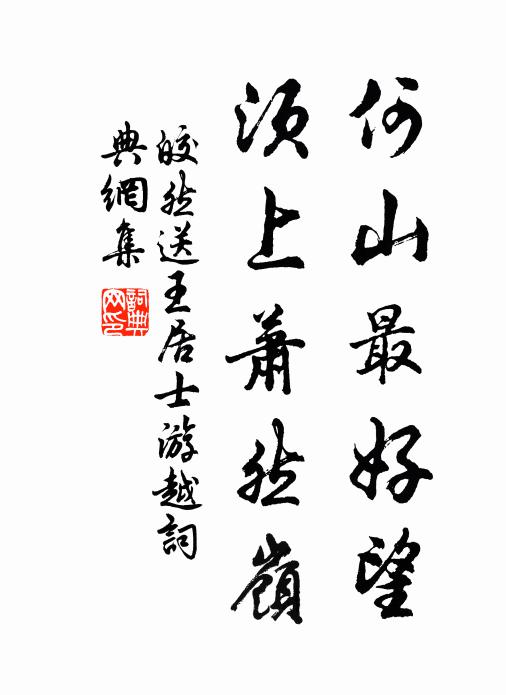 何山最好望
須上蕭然嶺
皎然送王居士游越詞
典網集
詞典網印